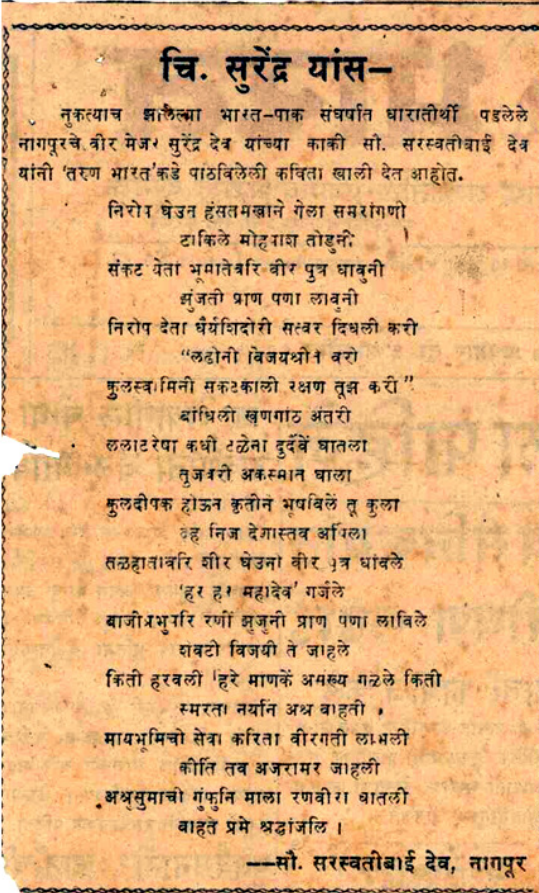 चि. सुरेंद्र यांस—
नुकत्याच झालेल्या भारत-पाक संघर्षात धारातीर्थी पडलेले
नागपूरचे वीर मेजर सुरेंद्र देव यांच्या काकी सौ. सरस्वतीबाई देव
यांनी 'तरुण भारत'कडे पाठविलेली कविता खाली देत आहोत.
निरोप घेउन हंसतमखाने गेला समरांगणी
टाकिले मोहपाश तोडुनी
संकट येता भूमातेवरि वीर पुत्र धावुनी
झुंजती प्राण पणा लावुनी
निरोप देता धैर्यशिदोरी सत्वर दिधली करी
"लढोनी विजयश्रीन वरो
कुलस्वामिनी संकटकाली रक्षण तूझ करी"
बांधिली खूणगाठ अंतरी
ललाटरेषा कधी टळेना दुर्दैवें घातला
तुजवरी अकस्मात घाला
कुलदीपक होऊन कृतीने भूषविलें तू कुला
देह निज देशास्तव अर्पिला
तळहातावरि शीर घेउनी वीर पुत्र धांवले
'हर हर महादेव' गर्जले
बाजीप्रभुपरि रणीं झुजुनी प्राण पणा लाविले
शेवटी विजयी ते जाहले
किती हरवली हिरे माणकें असंख्य गळले किती
स्मरता नयनि अश्रू वाहती
मायभूमिची सेवा करिता वीरगती लाभली
कीर्ति तव अजरामर जाहली
अश्रुसुमाची गुंफुनि माला रणवीरा घातली
वाहते प्रेमे श्रद्धांजलि ।
——सौ. सरस्वतीबाई देव, नागपूर